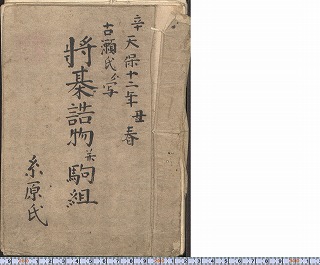 辛 天保十二年 丑 春
古瀬氏ゟ写
將棊詰物 并 駒組
糸原氏